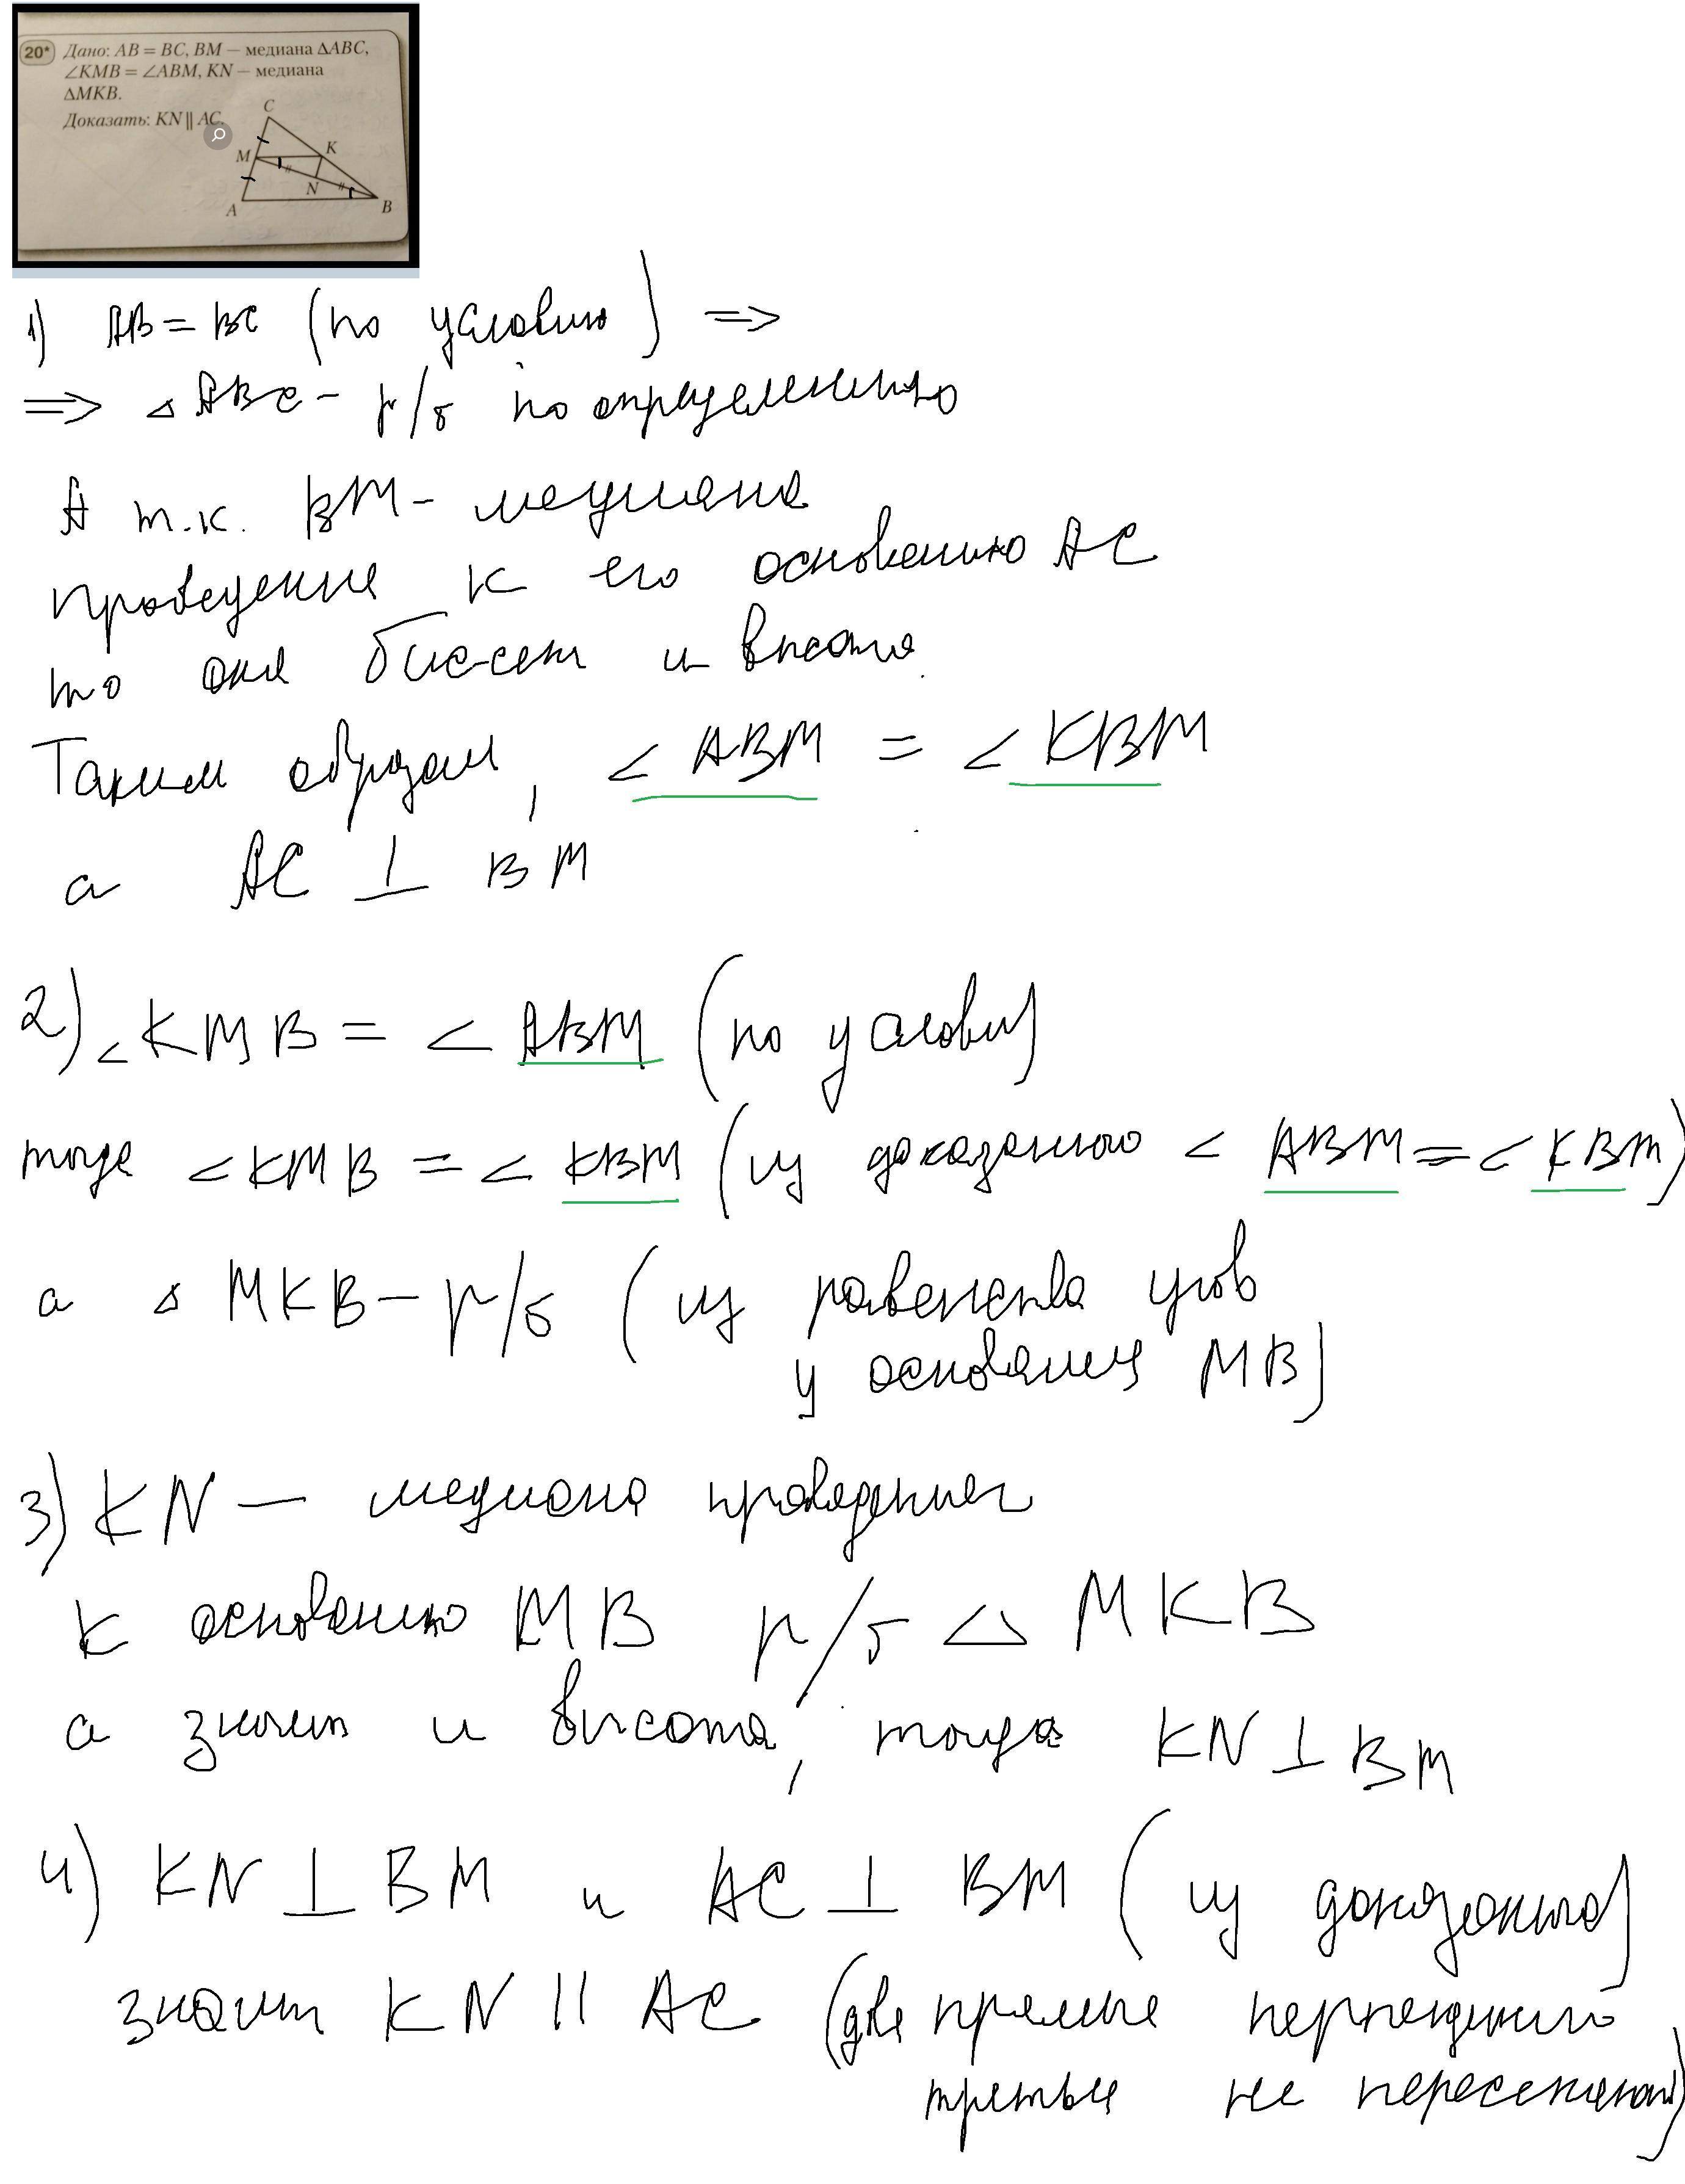 20* Дано: AB = BC, BM — медиана ΔABC,
∠KMB = ∠ABM, KN — медиана
ΔMKB.
Доказать: KN || AC.
C
M
K
N
A
B
1) AB = BC (по условию) ⇒
⇒ △ ABC – р/б по определению
А т.к. BM – медиана
проведенная к его основанию AC
то она биссект и высота.
Таким образом, ∠ ABM = ∠ KBM
а AC ⊥ BM
2) ∠KMB = ∠ ABM (по услови)
тогда ∠KMB = ∠ KBM (из доказанного ∠ ABM = ∠ KBM)
а △ MKB – р/б (из равенства углов
у основания MB)
3) KN — медиана проведенная
к основанию MB р/б △ MKB
а значит и высота, тогда KN ⊥ BM
4) KN ⊥ BM и AC ⊥ BM (из доказанного)
значит KN || AC (две прямые
третьей не пересекаются)